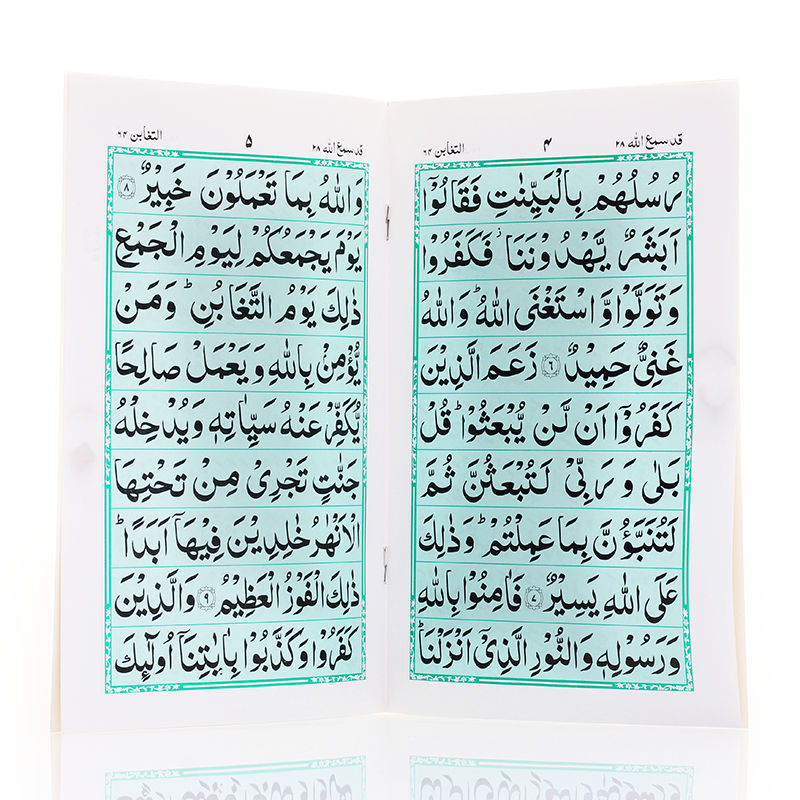 قد سمع الله ٢٨
۴
التغابن ٦۴
رُسُلُهُمْ بِالْبَيِّنٰتِ فَقَالُوْۤا
اَبَشَرٌ يَّهْدُوْنَنَا ۫ فَكَفَرُوْا
وَ تَوَلَّوْا وَّ اسْتَغْنَى اللّٰهُ ؕ وَ اللّٰهُ
غَنِيٌّ حَمِيْدٌ ۝۶ زَعَمَ الَّذِيْنَ
كَفَرُوْۤا اَنْ لَّنْ يُّبْعَثُوْا ؕ قُلْ
بَلٰى وَ رَبِّيْ لَتُبْعَثُنَّ ثُمَّ
لَتُنَبَّؤُنَّ بِمَا عَمِلْتُمْ ؕ وَ ذٰلِكَ
عَلَى اللّٰهِ يَسِيْرٌ ۝۷ فَاٰمِنُوْا بِاللّٰهِ
وَ رَسُوْلِهٖ وَ النُّوْرِ الَّذِيْۤ اَنْزَلْنَا ؕ
قد سمع الله ٢٨
۵
التغابن ٦۴
وَ اللّٰهُ بِمَا تَعْمَلُوْنَ خَبِيْرٌ ۝۸
يَوْمَ يَجْمَعُكُمْ لِيَوْمِ الْجَمْعِ
ذٰلِكَ يَوْمُ التَّغَابُنِ ؕ وَ مَنْ
يُّؤْمِنْۢ بِاللّٰهِ وَ يَعْمَلْ صَالِحًا
يُّكَفِّرْ عَنْهُ سَيِّاٰتِهٖ وَ يُدْخِلْهُ
جَنّٰتٍ تَجْرِيْ مِنْ تَحْتِهَا
الْاَنْهٰرُ خٰلِدِيْنَ فِيْهَاۤ اَبَدًا ؕ
ذٰلِكَ الْفَوْزُ الْعَظِيْمُ ۝۹ وَ الَّذِيْنَ
كَفَرُوْا وَ كَذَّبُوْا بِاٰيٰتِنَاۤ اُولٰٓئِكَ